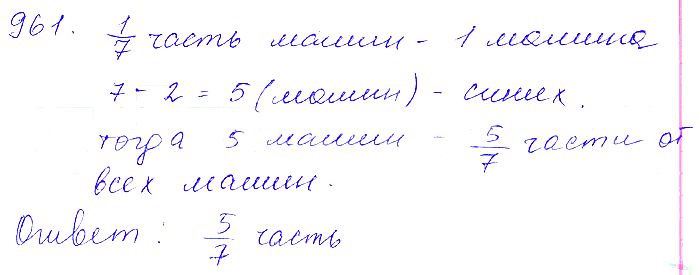 961. 1/7 часть машин - 1 машина
7 - 2 = 5 (машин) - синих.
тогда 5 машин - 5/7 части от
всех машин.
Ответ: 5/7 часть